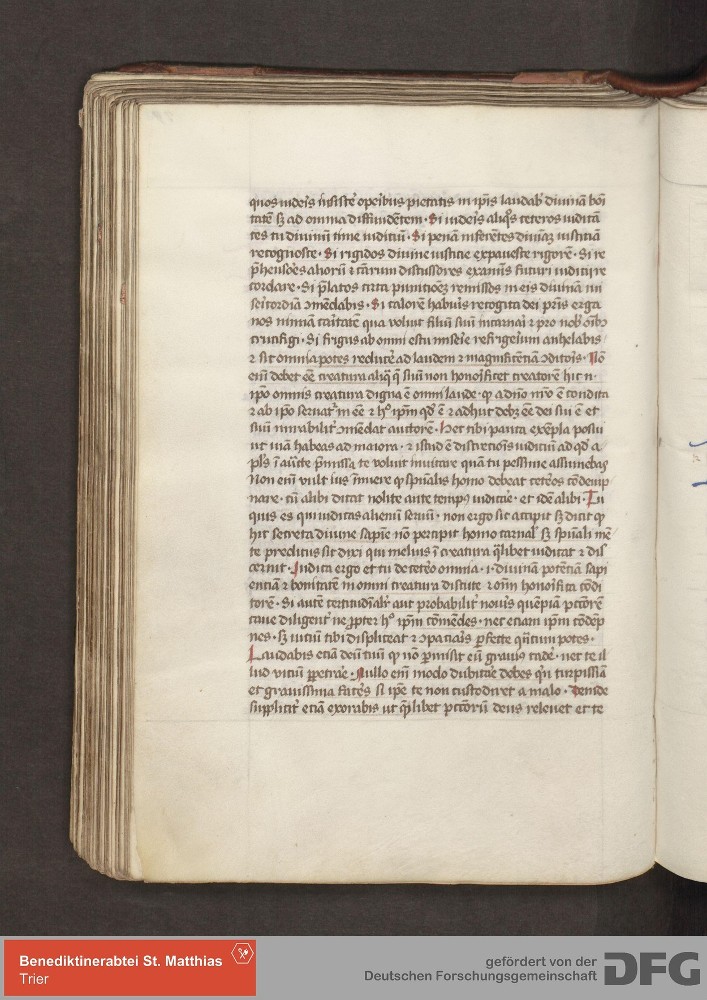 quos uideris insiste᷑ operibus pietatis in ip̄is laudab᷑ diuinā boni
tatē sꝫ ad omnia diffundētem · Si uideris aliq̄s ceteros iudicā
tes tu diuinū time iudiciū · Si penā inferētes diuinā iusticiā
recognosce · Si rigidos diuine iusticie expauesce rigorē · Si re
p̄hēsōes alioꝝ ⁊ discussōres examīs futuri iudicij re
cordare · Si p̄latos circa punitiōeꝫ remissos in eis diuinā mi
sericordiā ɔmēdabis · Si calorē habuis recogita dei p̄ris erga
nos nimiā caritatē qua voluit filiū suū incarnari ⁊ pro nob᷑ oībꝫ
crucifigi · Si frigus ab omni estu miserie refrigerium anhelabis
⁊ sic omnia potes reducē ad laudem ⁊ magnificētiā ɔditoris · Nō
eni᷑ debet eē creatura aliq̄ q̄ suū non honorificet creatorē hic n ·
ip̄o omnis creatura digna ē omni laude · ꝙ a dn̄o nr̄o ē condita
⁊ ab ipō seruat᷑ in eē ⁊ hᵒ ip̄m qđ ē ⁊ adhuc debꝫ eē dei sui ē et
suū mirabilit᷑ ɔmēdat auctorē · Hec tibi pauca exēpla posui
ut uiā habeas ad maiora · ⁊ istud ē discretionis iudiciū ad qđ a
pl̄s premissa te voluit inuitare quā tu pessime assumebas
Non enī vult ꝙ sp̄ualis homo debeat ceteros cōdemp
nare · cū alibi dicat nolite ante tempꝰ iudicare · et idē alibi · Tu
quis es qui iudicas alienū seruū · non ergo sic accipit sꝫ dicit ꝙ
hic secreta diuine sapiē nō percipit homo carnal᷑ sꝫ sp̄uali mē
te preditus sic dixi qui melius ī creatura q̄libet iudicat ⁊ dis
cernit · Iudica ergo et tu de cetero omnia · i · diuinā potētiā sapi
entiā ⁊ bonitatē in omni creatura discute ⁊ oēm honorifica cōdi
torē · Si autē certitudīalr᷑ aut probabilit᷑ nouis quēpiā pctōrē
caue diligent᷑ ne ꝓpter hᵒ ip̄m cōmēdes · nec etiam ip̄m cōdēp
nes · sꝫ uiciū tibi displiceat ⁊ ɔpaciaris perfecte q̄ntum potes ·
Laudabis etiā deū tuū ꝙ nō permisit eū grauiꝰ cadē · nec te il
lud viciū ꝑpetrare · Nullo eni᷑ modo dubitare debes qn̄ turpissīa
et grauissima faceres si ipē te non custodiret a malo · Deinde
supplicit᷑ etiā exorabis ut q̄libet pctōrū deus releuet et te
Benediktinerabtei St. Matthias
Trier
gefördert von der
Deutschen Forschungsgemeinschaft
DFG